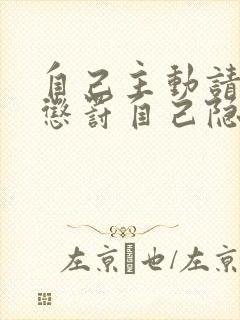 自己主動請
懲罰自己隐
左京也/左京